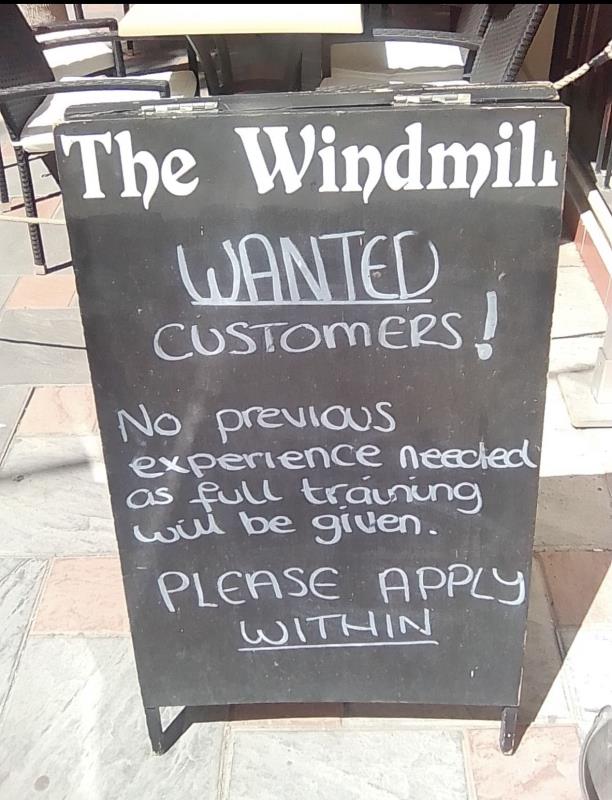 The Windmill
WANTED
CUSTOMERS!
No previous
experience needed
as full training
will be given.
PLEASE APPLY
WITHIN